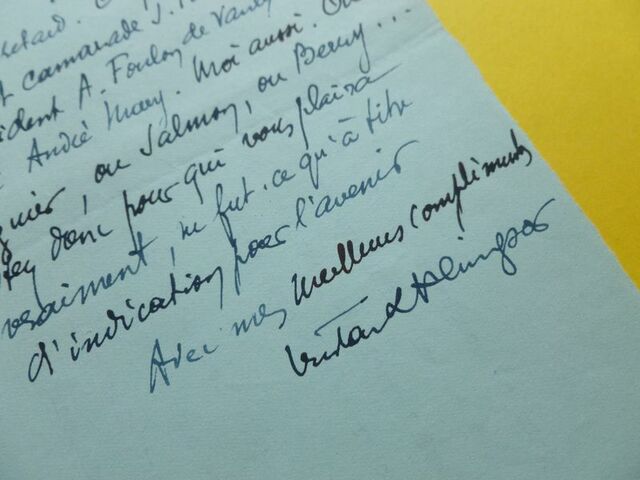 retard.
camarade J.
ident A. Foulon de Vaulx
André Mary. Moi aussi. Ou
gnier, ou Salmon, ou Berry...
donc pour qui vous plaira
vraiment, ne fut-ce qu'à titre
d'indication pour l'avenir
Avec mes meilleurs compliments
Tristan Klingsor